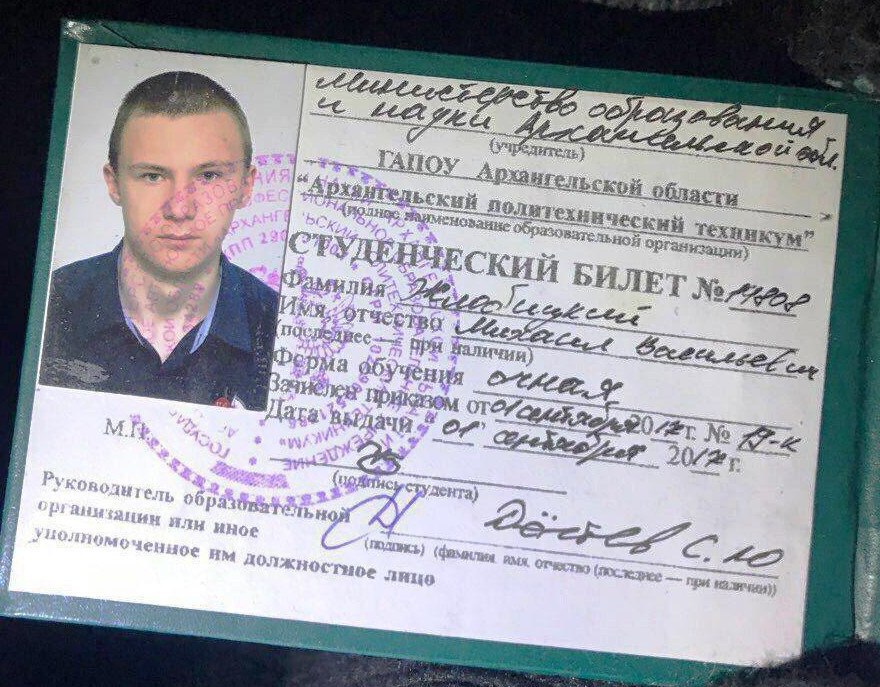 Министерство образования
и науки Архангельской обл.
(учредитель)
ГАПОУ Архангельской области
"Архангельский политехнический техникум"
(полное наименование образовательной организации)
СТУДЕНЧЕСКИЙ БИЛЕТ № 17808
Фамилия Жлобицкий
Имя, отчество Михаил Васильевич
(последнее — при наличии)
Форма обучения очная
Зачислен приказом от 01 сентября 2017 г. № 19-к
Дата выдачи "01" сентября 2017 г.
М.П.
(подпись студента)
Руководитель образовательной
организации или иное
уполномоченное им должностное лицо
Дёттев С. Ю
(подпись) (фамилия, имя, отчество (последнее — при наличии))